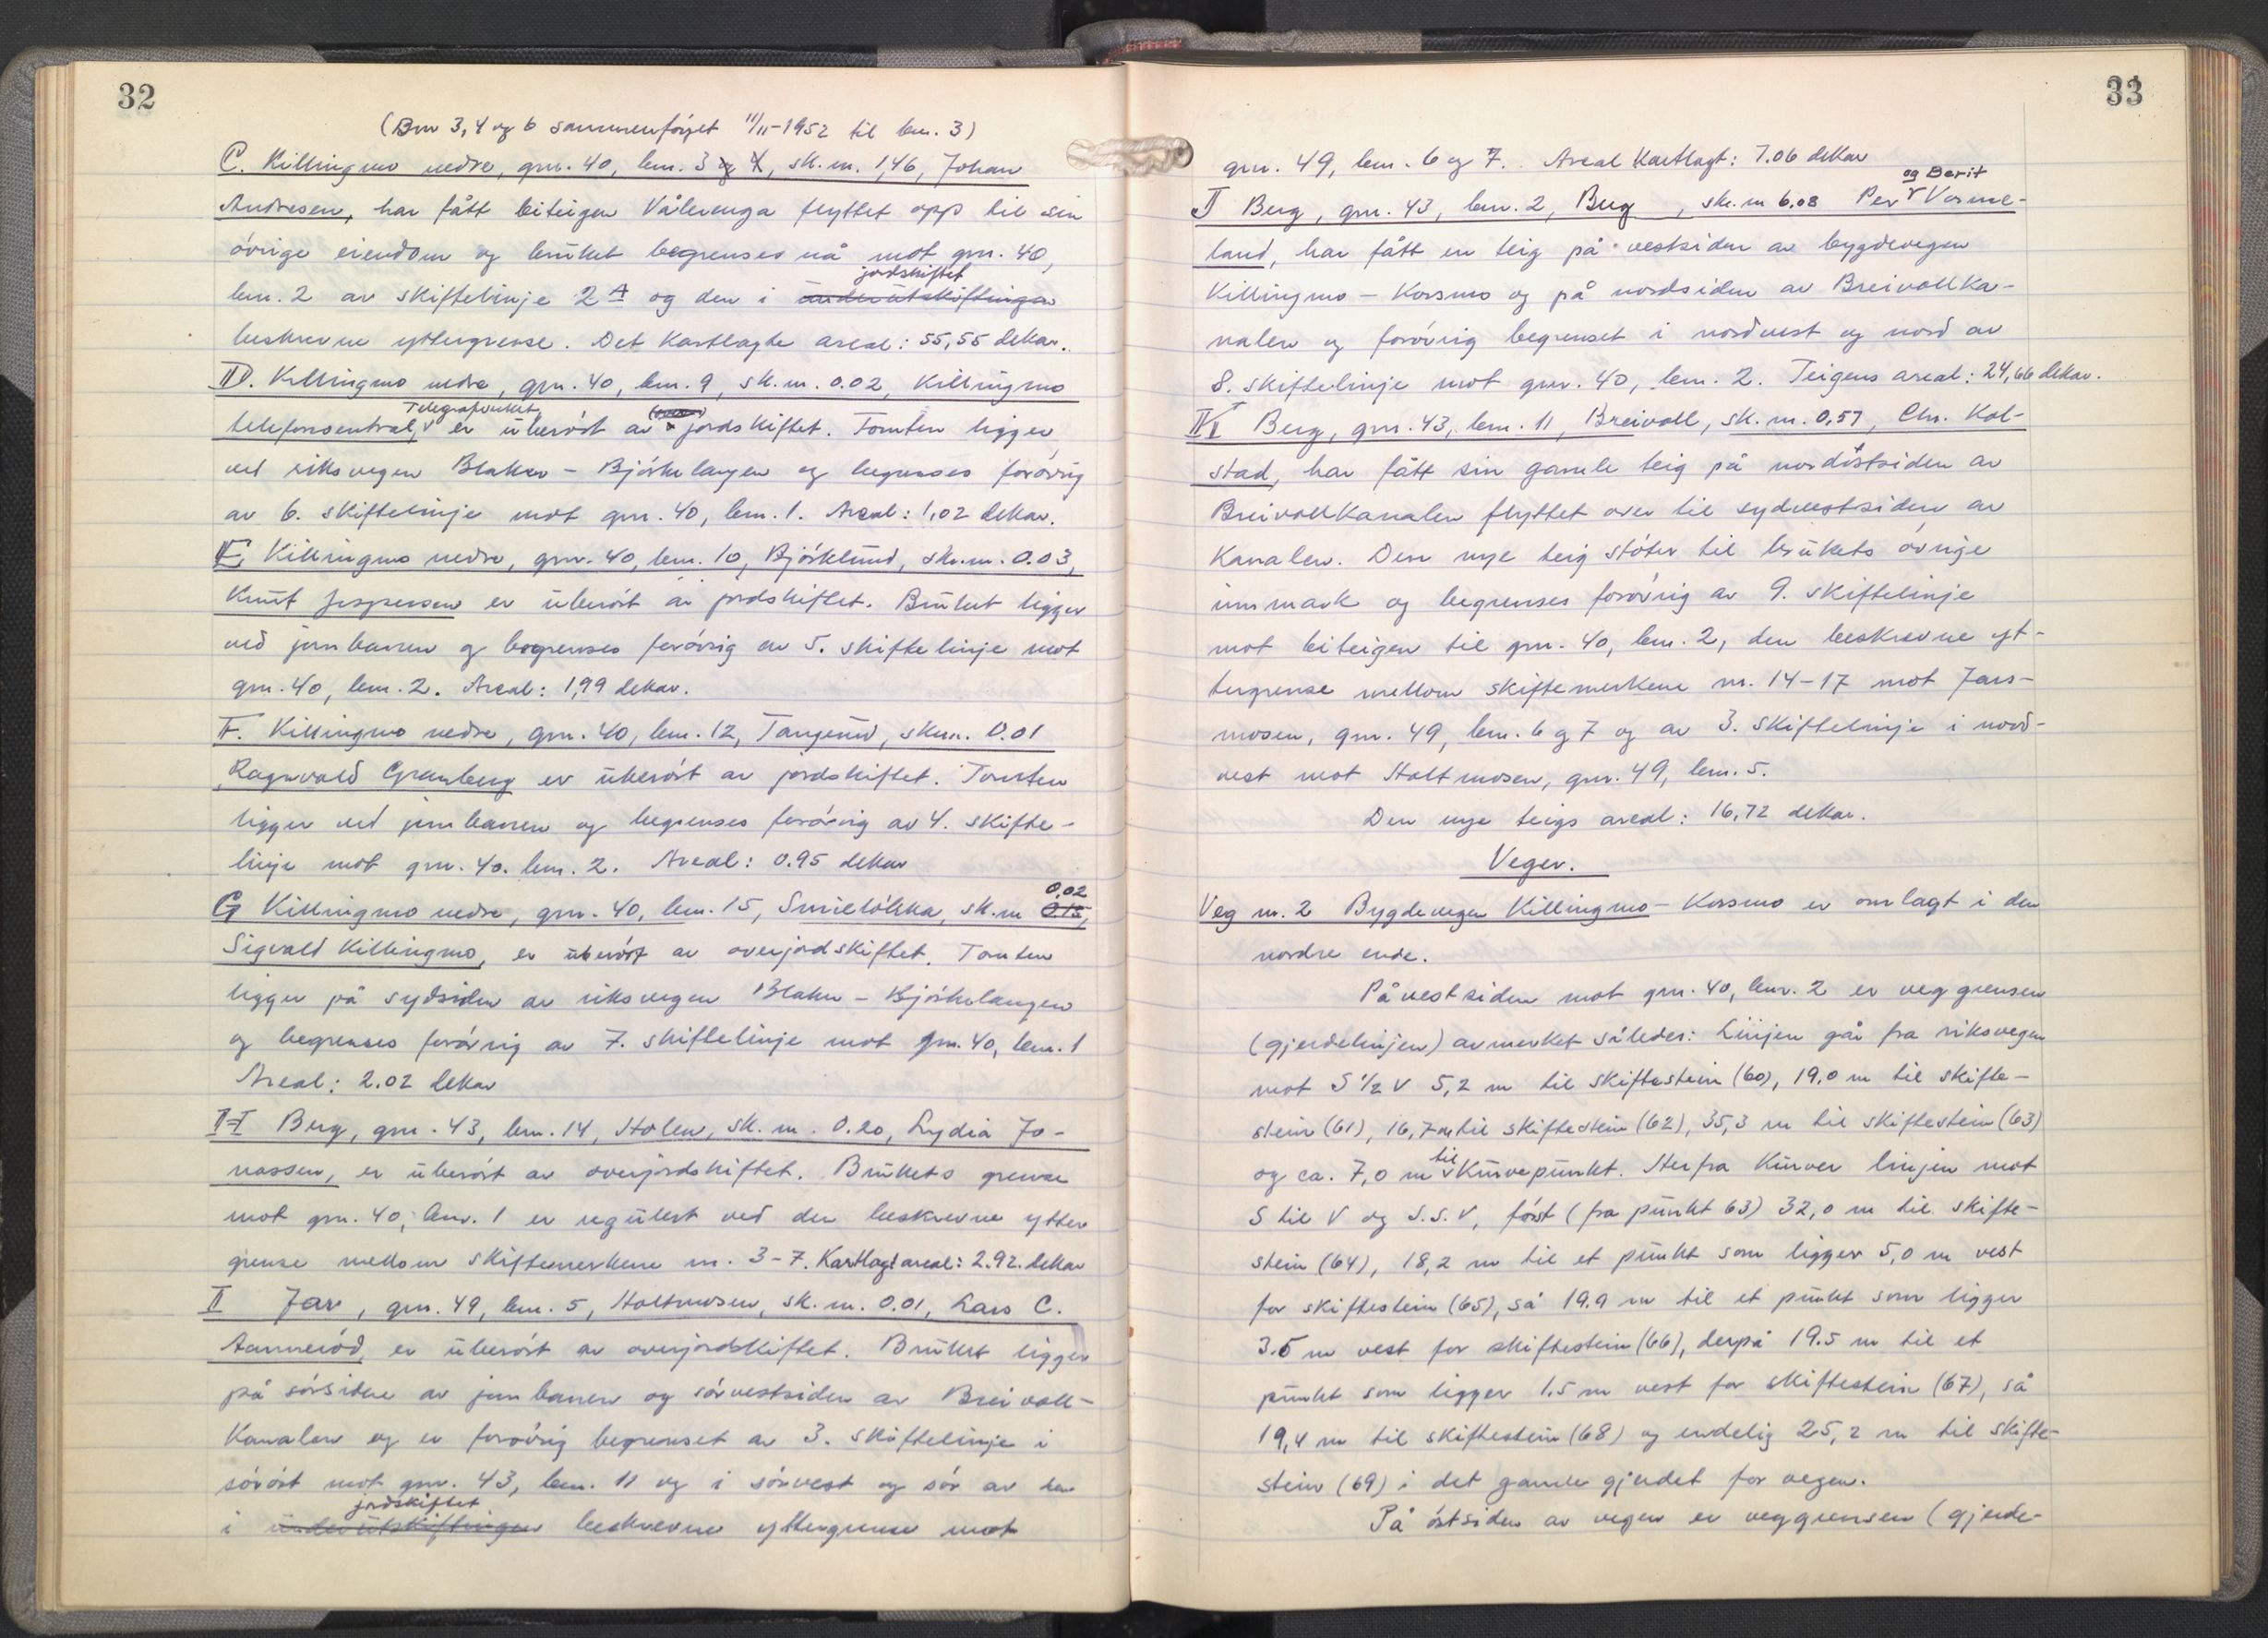 32
(Bnr 3, 4 og 6 sammenføyet 11/11-1952 til bnr. 3)
C. Killingmo nedre, gnr. 40, bnr. 3 og 4, sk. m. 1,46, Johan
Andresen, har fått biteigen Vålerenga flyttet opp til sin
øvrige eiendom og bruket begrenses nå mot gnr. 40,
jordskiftet
bnr. 2 av skiftelinje 2A og den i underutskiftingen
beskrevne yttergrense. Det kartlagte areal: 55,55 dekar.
D. Killingmo nedre, gnr. 40, bnr. 9, sk. m. 0.02, Killingmo
Telegrafverket
telefonsentral, er uberørt av jordskiftet. Tomten ligger
ved riksvegen Blaker - Bjørkelangen og begrenses forøvrig
av 6. skiftelinje mot gnr. 40, bnr. 1. Areal: 1,02 dekar.
E. Killingmo nedre, gnr. 40, bnr. 10, Bjørklund, sk. m. 0.03,
Knut Jespersen er uberørt av jordskiftet. Bruket ligger
ved jernbanen og begrenses forøvrig av 5. skiftelinje mot
gnr. 40, bnr. 2. Areal: 1,99 dekar.
F. Killingmo nedre, gnr. 40, bnr. 12, Tangerud, skm. 0.01
Ragnvald Granberg er uberørt av jordskiftet. Tomten
ligger ved jernbanen og begrenses forøvrig av 4. skifte-
linje mot gnr. 40. bnr. 2. Areal: 0.95 dekar
0,02
G Killingmo nedre, gnr. 40, bnr. 15, Smieløkka, sk. m 0.15,
Sigvald Killingmo, er uberørt av overjordskiftet. Tomten
ligger på sydsiden av riksvegen Blaker - Bjørkelangen
og begrenses forøvrig av 7. skiftelinje mot gnr. 40, bnr. 1
Areal: 2.02 dekar
H Berg, gnr. 43, bnr. 14, Holen, sk. m. 0.20, Lydia Jo-
nassen, er uberørt av overjordskiftet. Brukets grense
mot gnr. 40, bnr. 1 er regulert ved den beskrevne ytter
grense mellom skiftemerkene nr. 3-7. Kartlagt areal: 2.92. dekar
I Jar, gnr. 49, bnr. 5, Holtmosen, sk. m. 0.01, Lars C.
Aannerød, er uberørt av overjordskiftet. Bruket ligger
på sørsiden av jernbanen og sørvestsiden av Breivoll-
kanalen og er forøvrig begrenset av 3. skiftelinje i
sørøst mot gnr. 43, bnr. 11 og i sørvest og sør av den
jordskiftet
i underutskiftingen beskrevne yttergrense mot
33
gnr. 49, bnr. 6 og 7. Areal kartlagt: 7.06 dekar
og Berit
J Berg, gnr. 43, bnr. 2, Berg, sk. m 6.08 Per Verme-
land, har fått en teig på vestsiden av bygdevegen
Killingmo - Korsmo og på nordsiden av Breivollka-
nalen og forøvrig begrenset i nordvest og nord av
8. skiftelinje mot gnr. 40, bnr. 2. Teigens areal: 24,66 dekar.
K Berg, gnr. 43, bnr. 11, Breivoll, sk. m. 0,57, Chr. Kol-
stad, har fått sin gamle teig på nordøstsiden av
Breivollkanalen flyttet over til sydvestsiden av
kanalen. Den nye teig støter til brukets øvrige
innmark og begrenses forøvrig av 9. skiftelinje
mot biteigen til gnr. 40, bnr. 2, den beskrevne yt-
tergrense mellom skiftemerkene nr. 14-17 mot Jars-
mosen, gnr. 49, bnr. 6 og 7 og av 3. skiftelinje i nord-
vest mot Holtmosen, gnr. 49, bnr. 5.
Den nye teigs areal: 16,72 dekar.
Veger.
Veg nr. 2 Bygdevegen Killingmo - Korsmo er omlagt i den
nordre ende.
På vestsiden mot gnr. 40, bnr. 2 er veggrensen
(gjerdelinjen) avmerket således: Linjen går fra riksvegen
mot S 1/2 V 5,2 m til skiftestein (60), 19,0 m til skifte-
stein (61), 16,7 m til skiftestein (62), 35,3 m til skiftestein (63)
til
og ca. 7,0 m kurvepunkt. Herfra kurver linjen mot
S til V og S.S.V, først (fra punkt 63) 32,0 m til skifte-
stein (64), 18,2 m til et punkt som ligger 5,0 m vest
for skiftestein (65), så 19.9 m til et punkt som ligger
3.5 m vest for skiftestein (66), derpå 19.5 m til et
punkt som ligger 1.5 m vest for skiftestein (67), så
19,4 m til skiftestein (68) og endelig 25,2 m til skifte-
stein (69) i det gamle gjerdet for vegen.
På østsiden av vegen er veggrensen (gjerde-